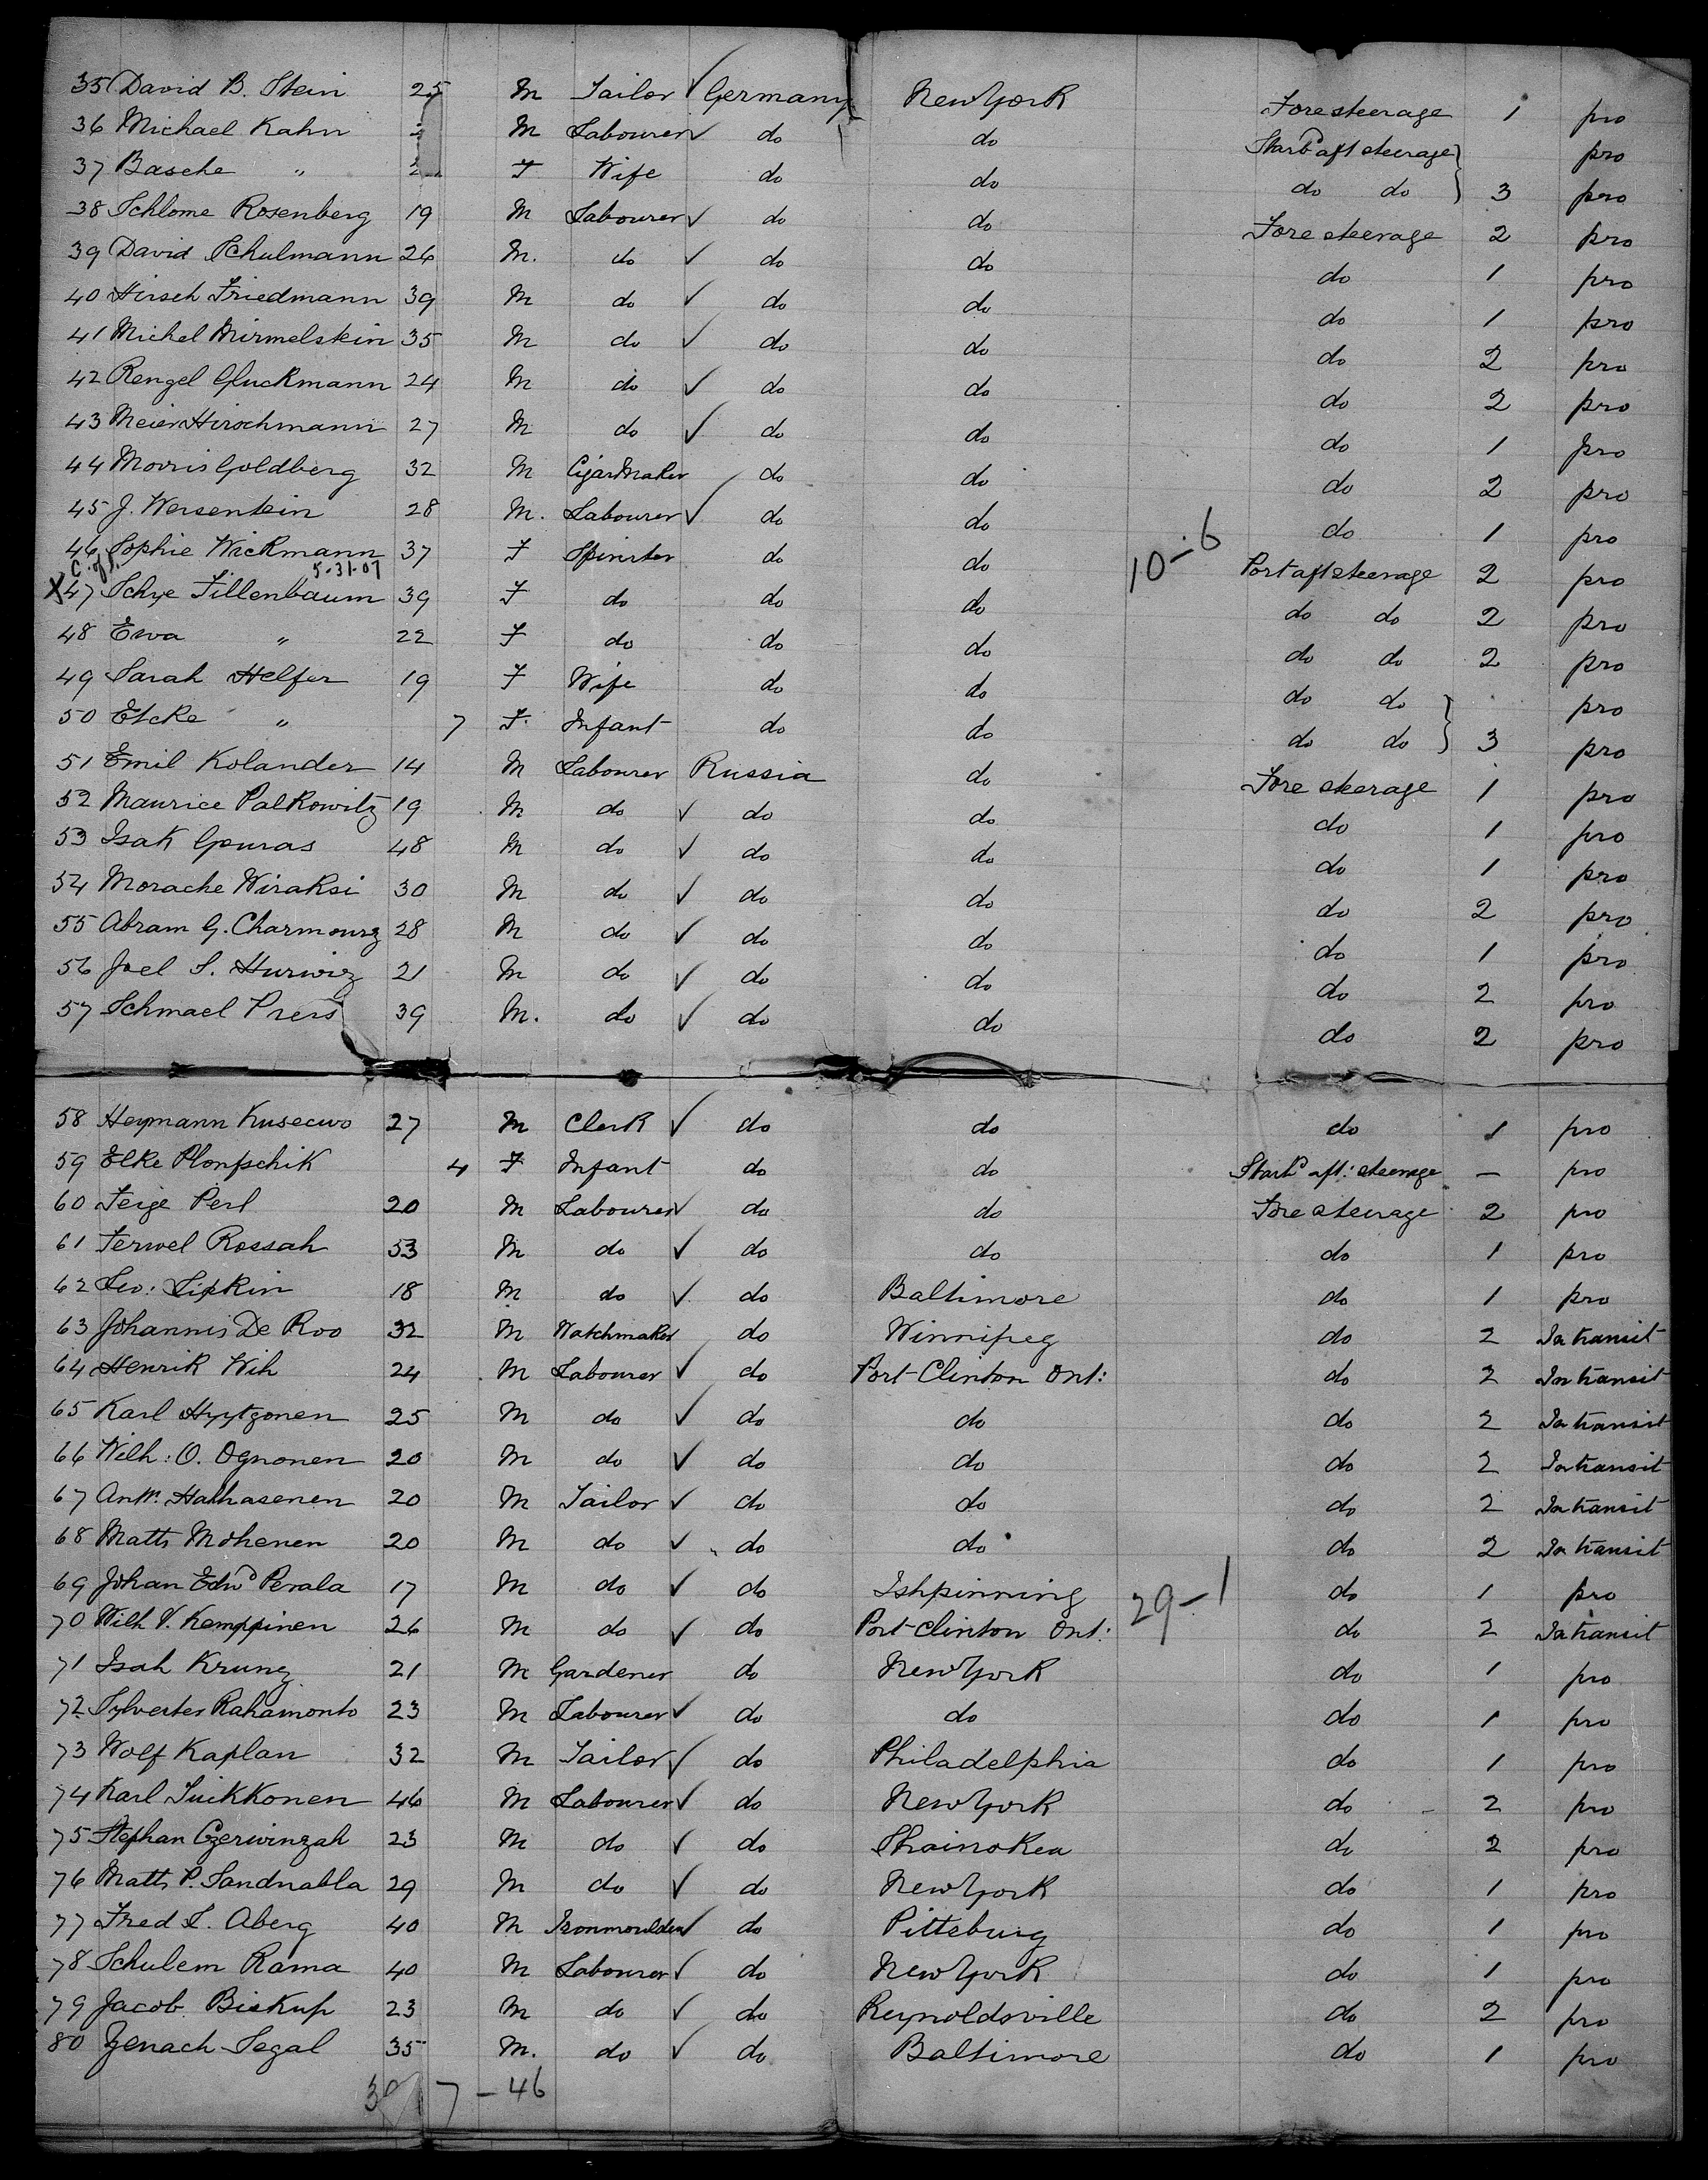 35 David B. Stein 25 M Tailor ✓ Germany New York Fore steerage 1 pro
36 Michael Kahn M Labourer ✓ do do Starb^d aft steerage } pro
37 Basche " F Wife do do do do } 3 pro
38 Schlome Rosenberg 19 M Labourer ✓ do do Fore steerage 2 pro
39 David Schulmann 26 M. do ✓ do do do 1 pro
40 Hirsch Friedmann 39 M do ✓ do do do 1 pro
41 Michel Mirmelstein 35 M do ✓ do do do 2 pro
42 Rengel Gluckmann 24 M do ✓ do do do 2 pro
43 Meier Hirschmann 27 M do ✓ do do do 1 pro
44 Morris Goldberg 32 M Cigar Maker do do do 2 pro
45 J. Weisentein 28 M. Labourer ✓ do do do 1 pro
46 Sophie Wickmann 37 F Spinster do do 10-6 Port aft steerage 2 pro
5-31-07
X 47 Schye Tillenbaum 39 F do do do do do 2 pro
48 Ewa " 22 F do do do do do 2 pro
49 Sarah Helfer 19 F Wife do do do do } pro
50 Etcke " 7 F Infant do do do do } 3 pro
51 Emil Kolander 14 M Labourer Russia do Fore steerage 1 pro
52 Maurice Palkowitz 19 M do ✓ do do do 1 pro
53 Isak 48 M do ✓ do do do 1 pro
54 Morache Wiraksi 30 M do ✓ do do do 2 pro
55 Abram G. Charmourz 28 M do ✓ do do do 1 pro
56 Joel S. Hurwiz 21 M do ✓ do do do 2 pro
57 Schmael Preis 39 M. do ✓ do do do 2 pro
58 Heymann Kusecwo 27 M Clerk ✓ do do do 1 pro
59 Elke Plonpschik 4 F Infant do do Starb^d aft: steerage — pro
60 Feige Perl 20 M Labourer ✓ do do Fore steerage 2 pro
61 Ferwel Rossah 53 M do ✓ do do do 1 pro
62 Leo: Lipkin 18 M do ✓ do Baltimore do 1 pro
63 Johannis De Roo 32 M Watchmaker do Winnipeg do 2 In transit
64 Henrik Wih 24 M Labourer ✓ do Port-Clinton Ont: do 2 In transit
65 Karl Hyytzonen 25 M do ✓ do do do 2 In transit
66 Wilh: O. Ognonen 20 M do ✓ do do do 2 In transit
67 Hathasenen 20 M Tailor ✓ do do do 2 In transit
68 Matts Mohenen 20 M do ✓ do do do 2 In transit
69 Johan Edw^d Perala 17 M do ✓ do Ishpinning 29-1 do 1 pro
70 Wilh V. Kemppinen 26 M do ✓ do Port-Clinton Ont: do 2 In transit
71 Isah Krung 21 M Gardener do New York do 1 pro
72 Sylvester Rahamonto 23 M Labourer ✓ do do do 1 pro
73 Wolf Kaplan 32 M Tailor ✓ do Philadelphia do 1 pro
74 Karl Tuikkonen 46 M Labourer ✓ do New York do 2 pro
75 Stephan Czerwinzah 23 M do ✓ do Shainokea do 2 pro
76 Matts P. Sandnabla 29 M do ✓ do New York do 1 pro
77 Fred L. Aberg 40 M Ironmoulder ✓ do Pittsburg do 1 pro
78 Schulem Rama 40 M Labourer ✓ do New York do 1 pro
79 Jacob Biskup 23 M do ✓ do Reynoldsville do 2 pro
80 Zenach Segal 35 M. do ✓ do Baltimore do 1 pro
39 7 - 46